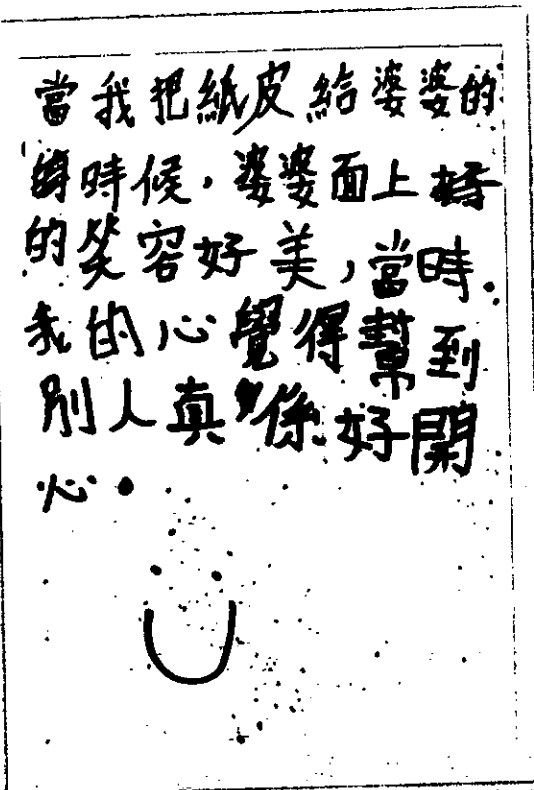 當我把紙皮給婆婆的
時候,婆婆面上
的笑容好美,當時
我的心覺得幫到
別人真係好開
心。